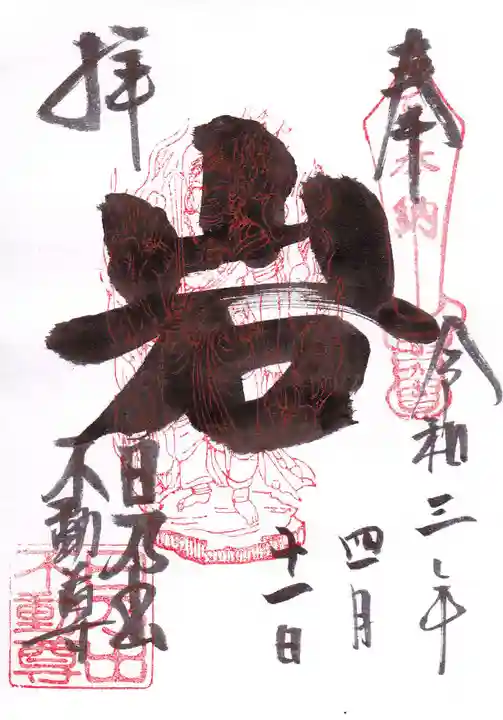 奉拝
奉納
岩
令和三年
四月
十一日
日乃出
不動尊
日乃出
不動尊